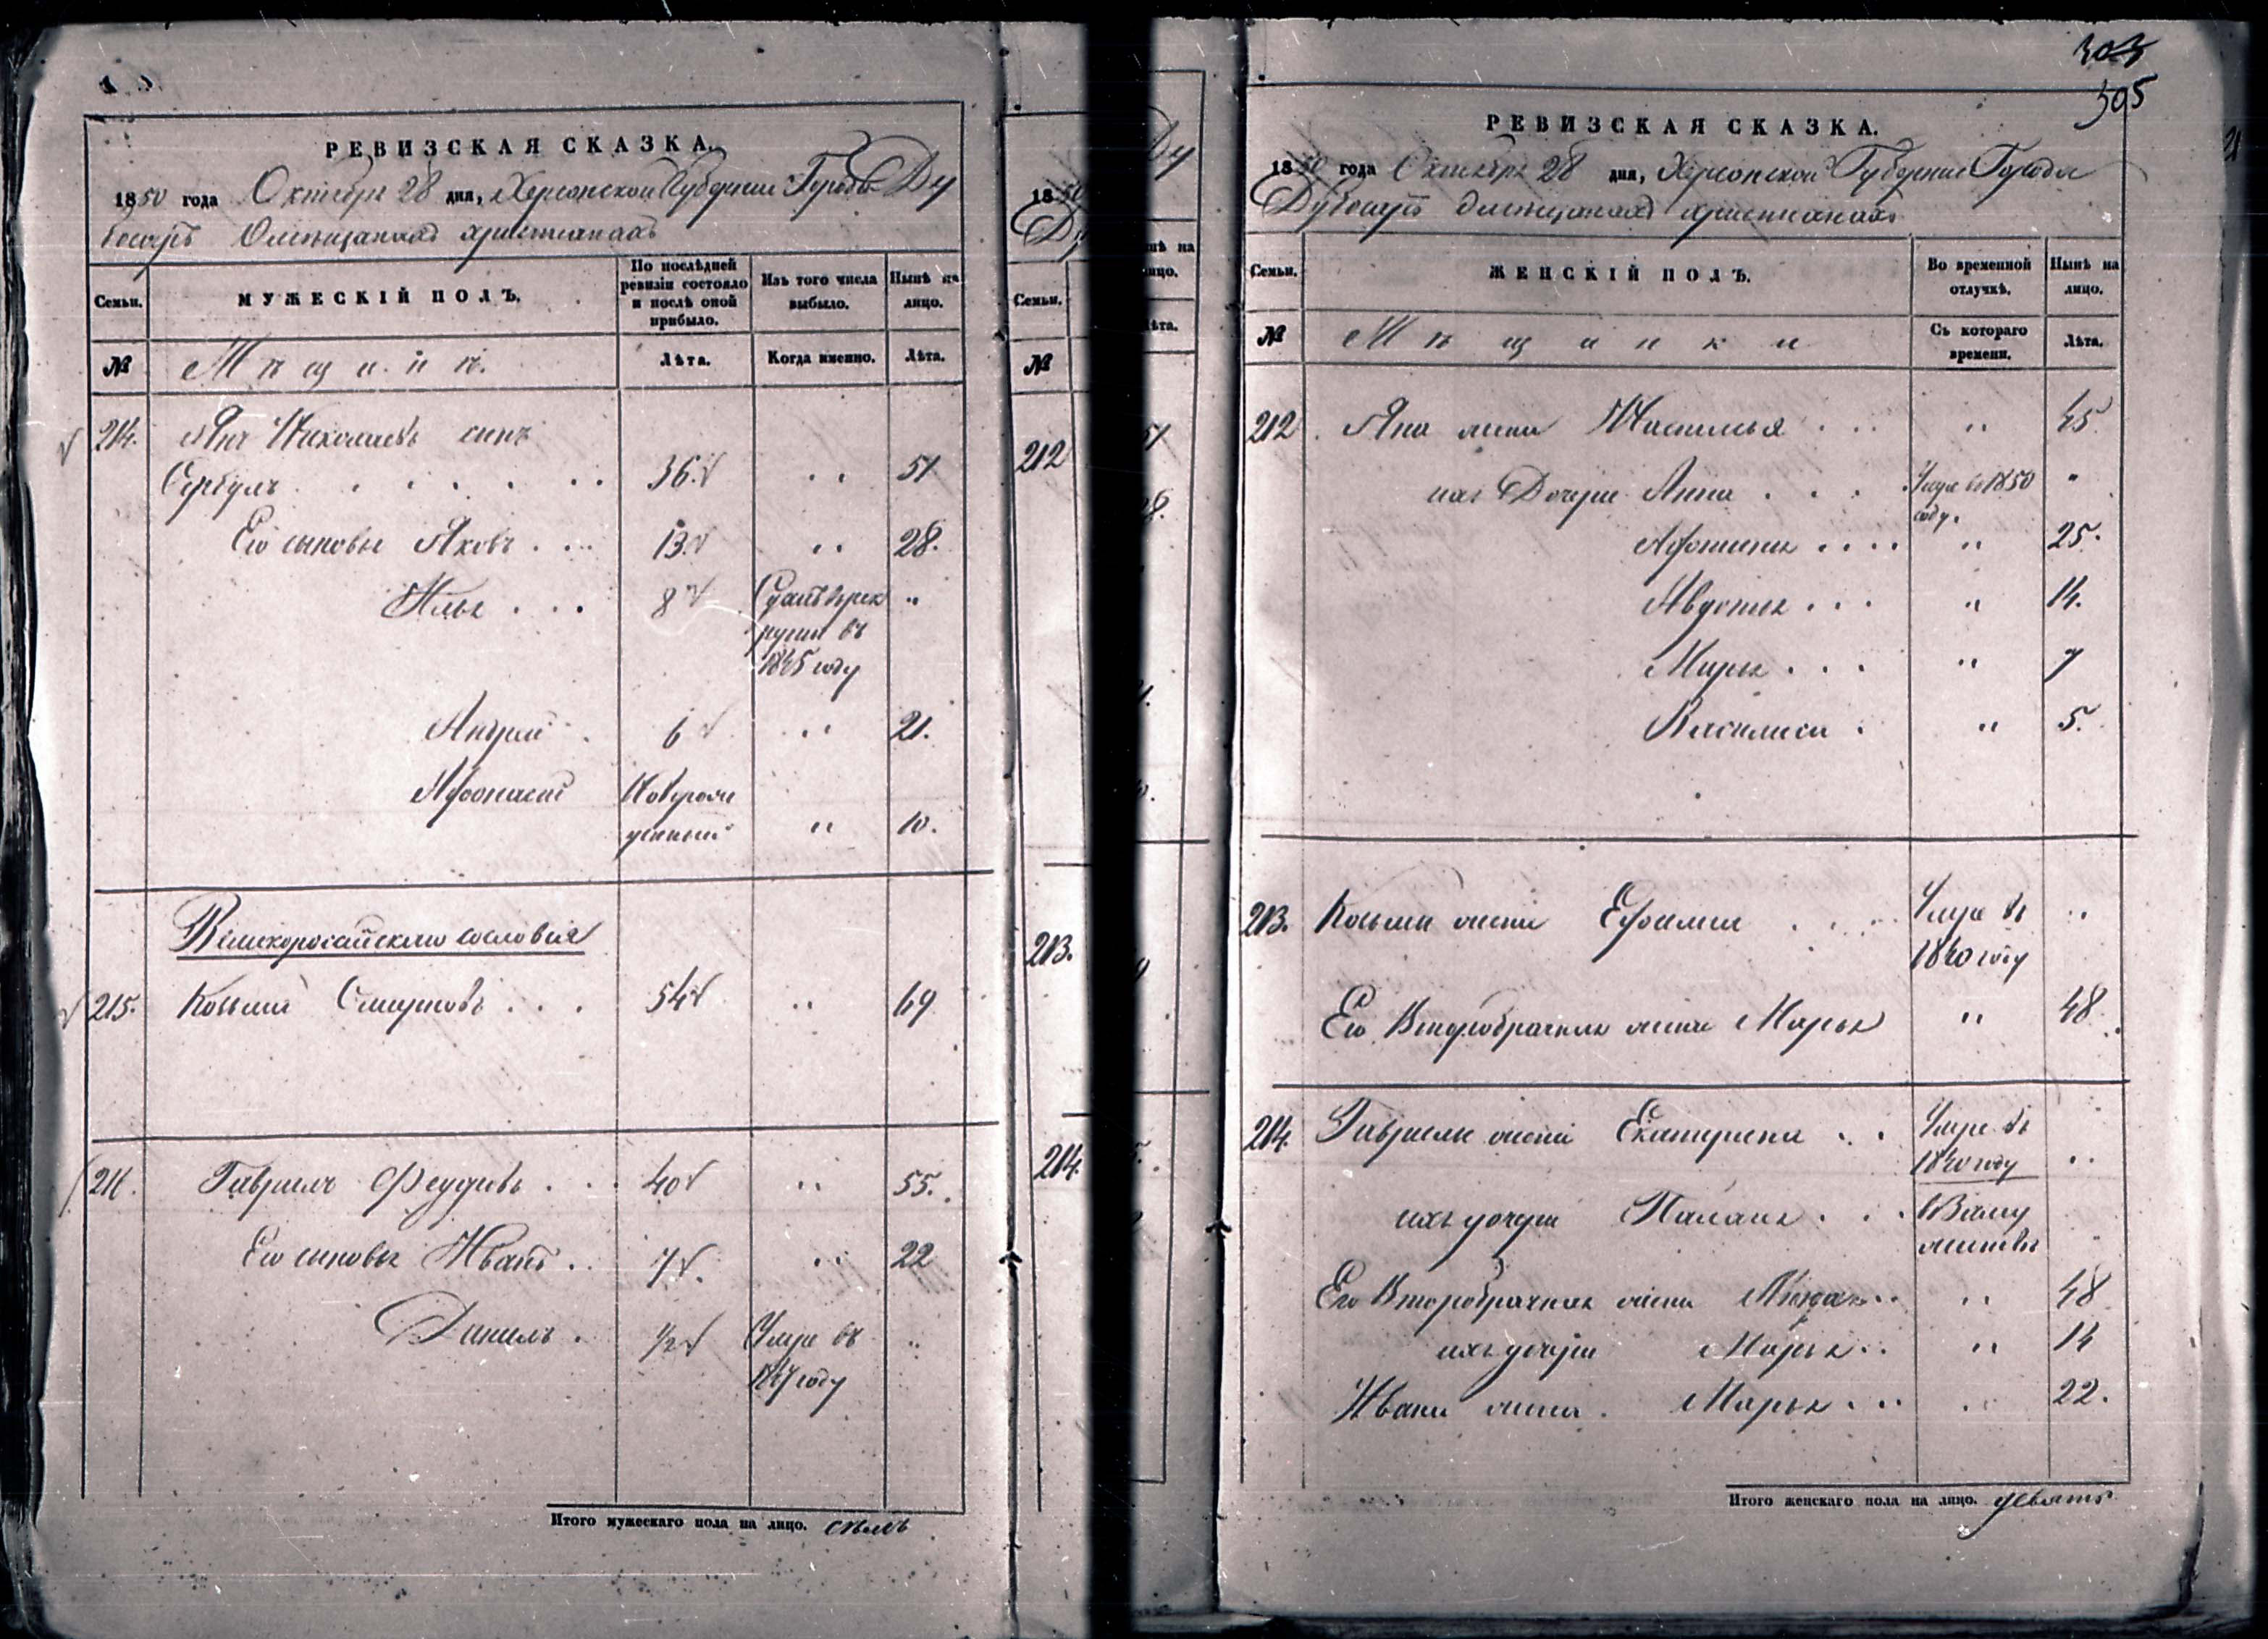 РЕВИЗСКАЯ СКАЗКА.
1850 года Октября 28 дня, Херсонской Губернии Города Ду
босаръ О мѣщанахъ христіанахъ
Семьи.
МУЖЕСКІЙ ПОЛЪ.
По послѣдней ревизіи состояло и послѣ оной прибыло.
Изъ того числа выбыло.
Нынѣ на лицо.
№
Мѣщане.
Лѣта.
Когда именно.
Лѣта.
214. Янъ Николаевъ сынъ
Сербулъ 36. 51
Его сыновья Яковъ 13. 28.
Илья 8 Сданъ въ рек
руты въ
1845 году
Андрей 6 21.
Афонасий Новорож
денный 10.
Великоросайскаго сословія
215. Косьма Смирновъ 54 69
216. Гавриилъ Федоровъ 40 55.
Его сыновья Иванъ 7. 22
Данилъ 1/2 Умре въ
1847 году
Итого мужескаго пола на лицо. семь
Ду
1850
Ду
Семьи.
№
212
213.
214.
303
305
РЕВИЗСКАЯ СКАЗКА.
1850 года Октября 28 дня, Херсонской Губерніи Города
Дубосаръ О мѣщанахъ христіанахъ
Семьи.
ЖЕНСКІЙ ПОЛЪ.
Во временной отлучкѣ.
Нынѣ на лицо.
№
Мѣщанки
Съ котораго времени.
Лѣта.
212. Яна жена Настасья 45
ихъ Дочери Анна Умре въ 1850
году.
Афтинья 25.
Авдотья 14.
Марья 7
Василиса 5.
213. Косьмы жена Ефимия Умре въ
1840 году
Его Второбрачная жена Марья 48
214. Гавриила жена Екатерина Умре въ
1840 году
ихъ дочери Палаия въ Заму
жествѣ
Его Второбрачная жена 48
ихъ дочери Марья 14
Ивана жена Марья 22.
Итого женскаго пола на лицо. девять